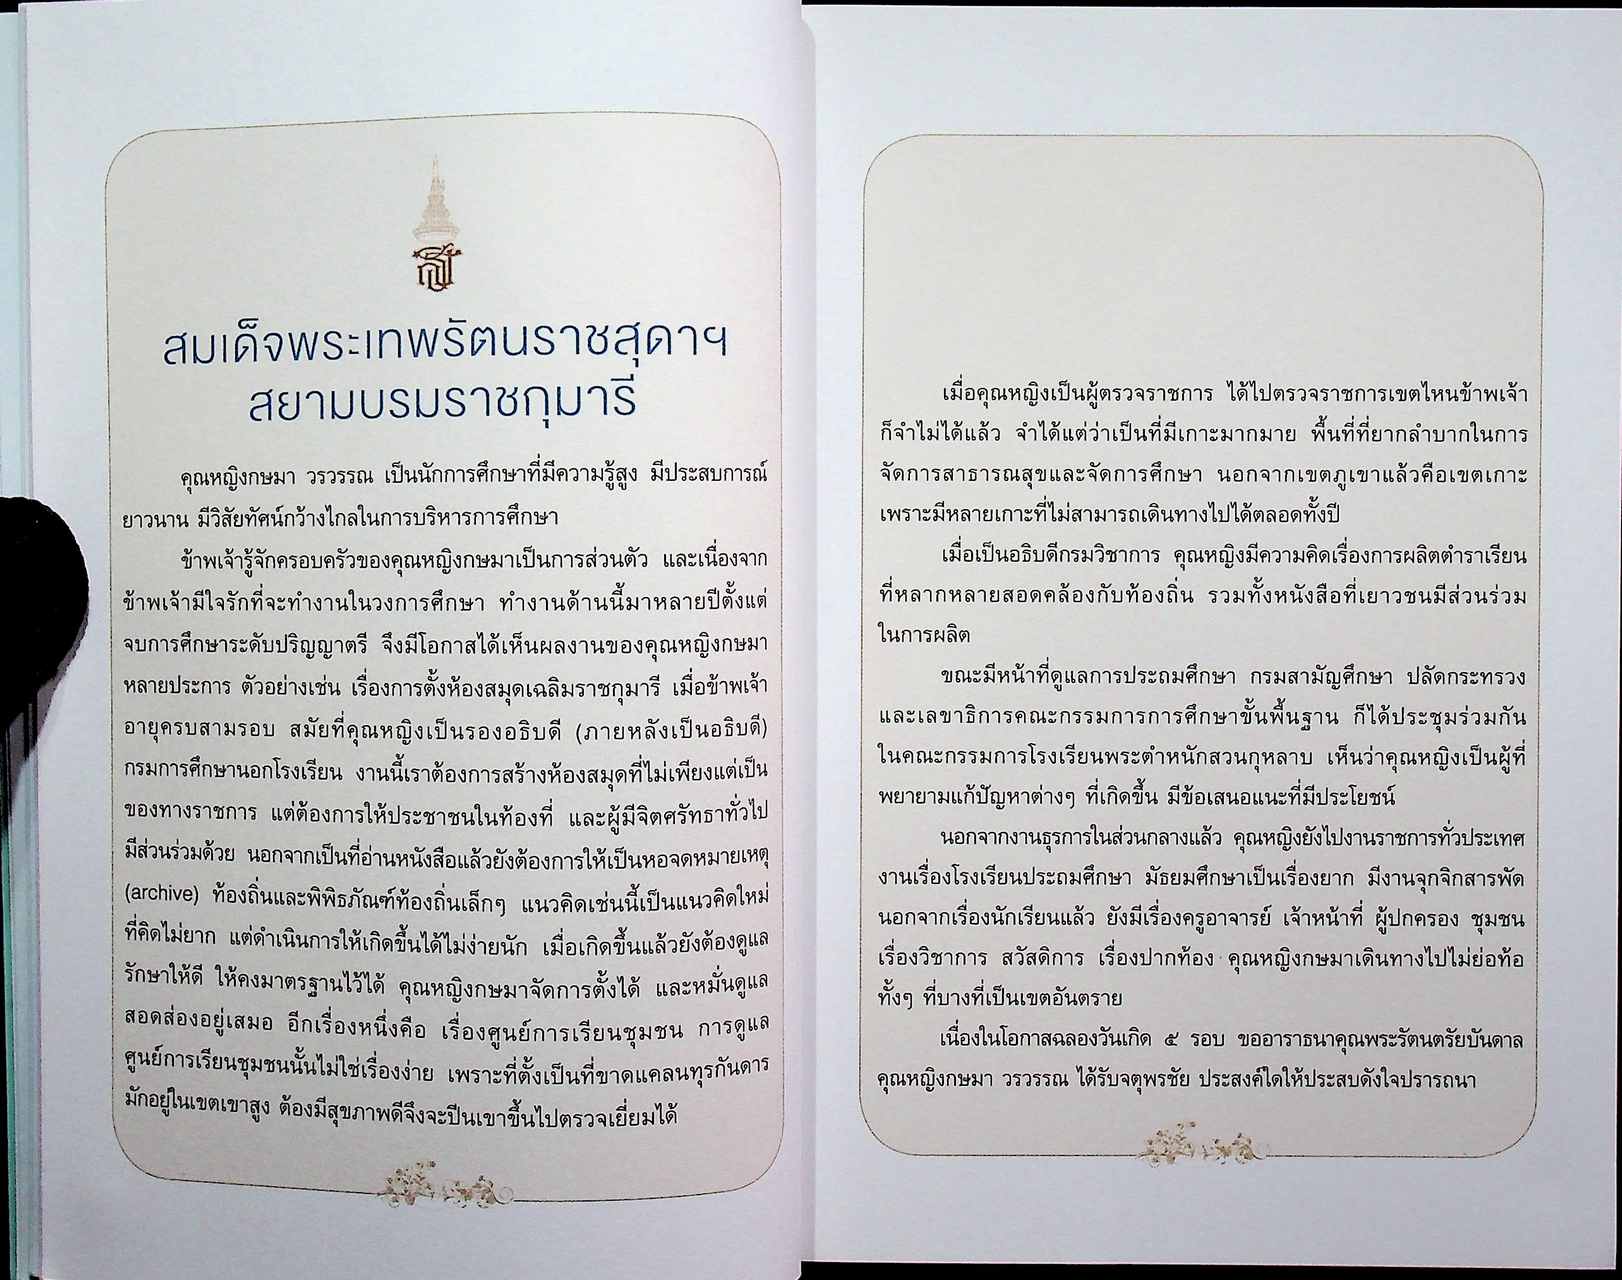 สมเด็จพระเทพรัตนราชสุดาฯ
สยามบรมราชกุมารี
คุณหญิงกษมา วรวรรณ เป็นนักการศึกษาที่มีความรู้สูง มีประสบการณ์
ยาวนาน มีวิสัยทัศน์กว้างไกลในการบริหารการศึกษา
ข้าพเจ้ารู้จักครอบครัวของคุณหญิงกษมาเป็นการส่วนตัว และเนื่องจาก
ข้าพเจ้ามีใจรักที่จะทำงานในวงการศึกษา ทำงานด้านนี้มาหลายปีตั้งแต่
จบการศึกษาระดับปริญญาตรี จึงมีโอกาสได้เห็นผลงานของคุณหญิงกษมา
หลายประการ ตัวอย่างเช่น เรื่องการตั้งห้องสมุดเฉลิมราชกุมารี เมื่อข้าพเจ้า
อายุครบสามรอบ สมัยที่คุณหญิงเป็นรองอธิบดี (ภายหลังเป็นอธิบดี)
กรมการศึกษานอกโรงเรียน งานนี้เราต้องการสร้างห้องสมุดที่ไม่เพียงแต่เป็น
ของทางราชการ แต่ต้องการให้ประชาชนในท้องที่ และผู้มีจิตศรัทธาทั่วไป
มีส่วนร่วมด้วย นอกจากเป็นที่อ่านหนังสือแล้วยังต้องการให้เป็นหอจดหมายเหตุ
(archive) ท้องถิ่นและพิพิธภัณฑ์ท้องถิ่นเล็กๆ แนวคิดเช่นนี้เป็นแนวคิดใหม่
ที่คิดไม่ยาก แต่ดำเนินการให้เกิดขึ้นได้ไม่ง่ายนัก เมื่อเกิดขึ้นแล้วยังต้องดูแล
รักษาให้ดี ให้คงมาตรฐานไว้ได้ คุณหญิงกษมาจัดการตั้งได้ และหมั่นดูแล
สอดส่องอยู่เสมอ อีกเรื่องหนึ่งคือ เรื่องศูนย์การเรียนชุมชน การดูแล
ศูนย์การเรียนชุมชนนั้นไม่ใช่เรื่องง่าย เพราะที่ตั้งเป็นที่ขาดแคลนทุรกันดาร
มักอยู่ในเขตเขาสูง ต้องมีสุขภาพดีจึงจะปีนเขาขึ้นไปตรวจเยี่ยมได้
เมื่อคุณหญิงเป็นผู้ตรวจราชการ ได้ไปตรวจราชการเขตไหนข้าพเจ้า
ก็จำไม่ได้แล้ว จำได้แต่ว่าเป็นที่มีเกาะมากมาย พื้นที่ที่ยากลำบากในการ
จัดการสาธารณสุขและจัดการศึกษา นอกจากเขตภูเขาแล้วคือเขตเกาะ
เพราะมีหลายเกาะที่ไม่สามารถเดินทางไปได้ตลอดทั้งปี
เมื่อเป็นอธิบดีกรมวิชาการ คุณหญิงมีความคิดเรื่องการผลิตตำราเรียน
ที่หลากหลายสอดคล้องกับท้องถิ่น รวมทั้งหนังสือที่เยาวชนมีส่วนร่วม
ในการผลิต
ขณะมีหน้าที่ดูแลการประถมศึกษา กรมสามัญศึกษา ปลัดกระทรวง
และเลขาธิการคณะกรรมการการศึกษาขั้นพื้นฐาน ก็ได้ประชุมร่วมกัน
ในคณะกรรมการโรงเรียนพระตำหนักสวนกุหลาบ เห็นว่าคุณหญิงเป็นผู้ที่
พยายามแก้ปัญหาต่างๆ ที่เกิดขึ้น มีข้อเสนอแนะที่มีประโยชน์
นอกจากงานธุรการในส่วนกลางแล้ว คุณหญิงยังไปงานราชการทั่วประเทศ
งานเรื่องโรงเรียนประถมศึกษา มัธยมศึกษาเป็นเรื่องยาก มีงานจุกจิกสารพัด
นอกจากเรื่องนักเรียนแล้ว ยังมีเรื่องครูอาจารย์ เจ้าหน้าที่ ผู้ปกครอง ชุมชน
เรื่องวิชาการ สวัสดิการ เรื่องปากท้อง คุณหญิงกษมาเดินทางไปไม่ย่อท้อ
ทั้งๆ ที่บางที่เป็นเขตอันตราย
เนื่องในโอกาสฉลองวันเกิด ๕ รอบ ขออาราธนาคุณพระรัตนตรัยบันดาล
คุณหญิงกษมา วรวรรณ ได้รับจตุพรชัย ประสงค์ใดให้ประสบดังใจปรารถนา